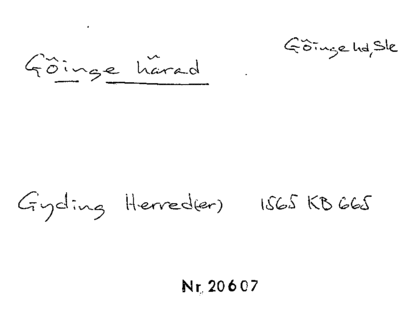 Göinge hd, Sk
Göinge härad
Gyding Herred(er) 1565 KB 665
Nr. 20607